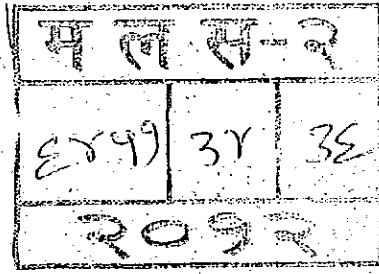 म ल स-२
६४५१ ३४ ३६
२०१२